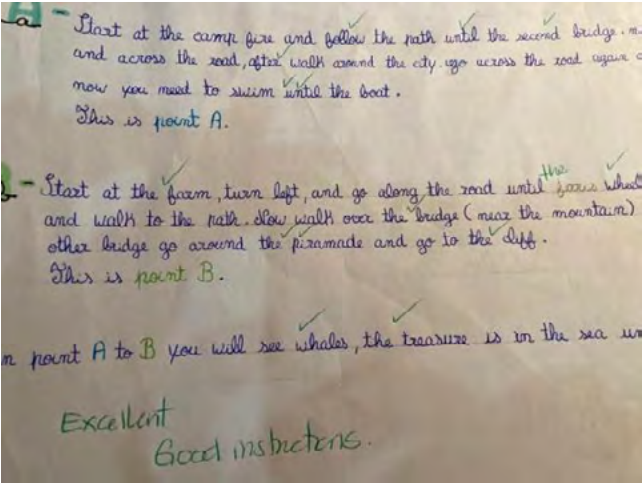 a - Start at the camp fire and follow the path until the second bridge.
and across the road, after walk around the city. go across the road
now you need to swim until the boat.
This is point A.
- Start at the farm, turn left, and go along the road until the
and walk to the path. Now walk over the bridge (near the mountain)
other bridge go around the piramade and go to the cliff.
This is point B.
point A to B you will see whales, the treasure is in the sea
Excellent
Good instructions.